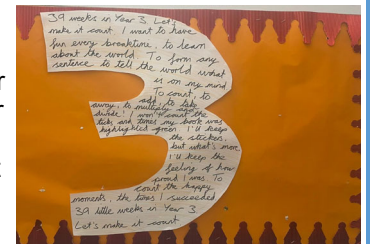 39 weeks in Year 3. Let's
make it count. I want to have
fun every breaktime, to learn
about the world. To form any
sentence to tell the world what
is on my mind.
To count, to
add, to take
away, to multiply and
divide! I won't count the
ticks and times my book was
highlighted green. I'll keep
the stickers,
but what's more
I'll keep the
feeling of how
proud I was. To
count the happy
moments, the times I succeeded
39 little weeks in Year 3
Let's make it count